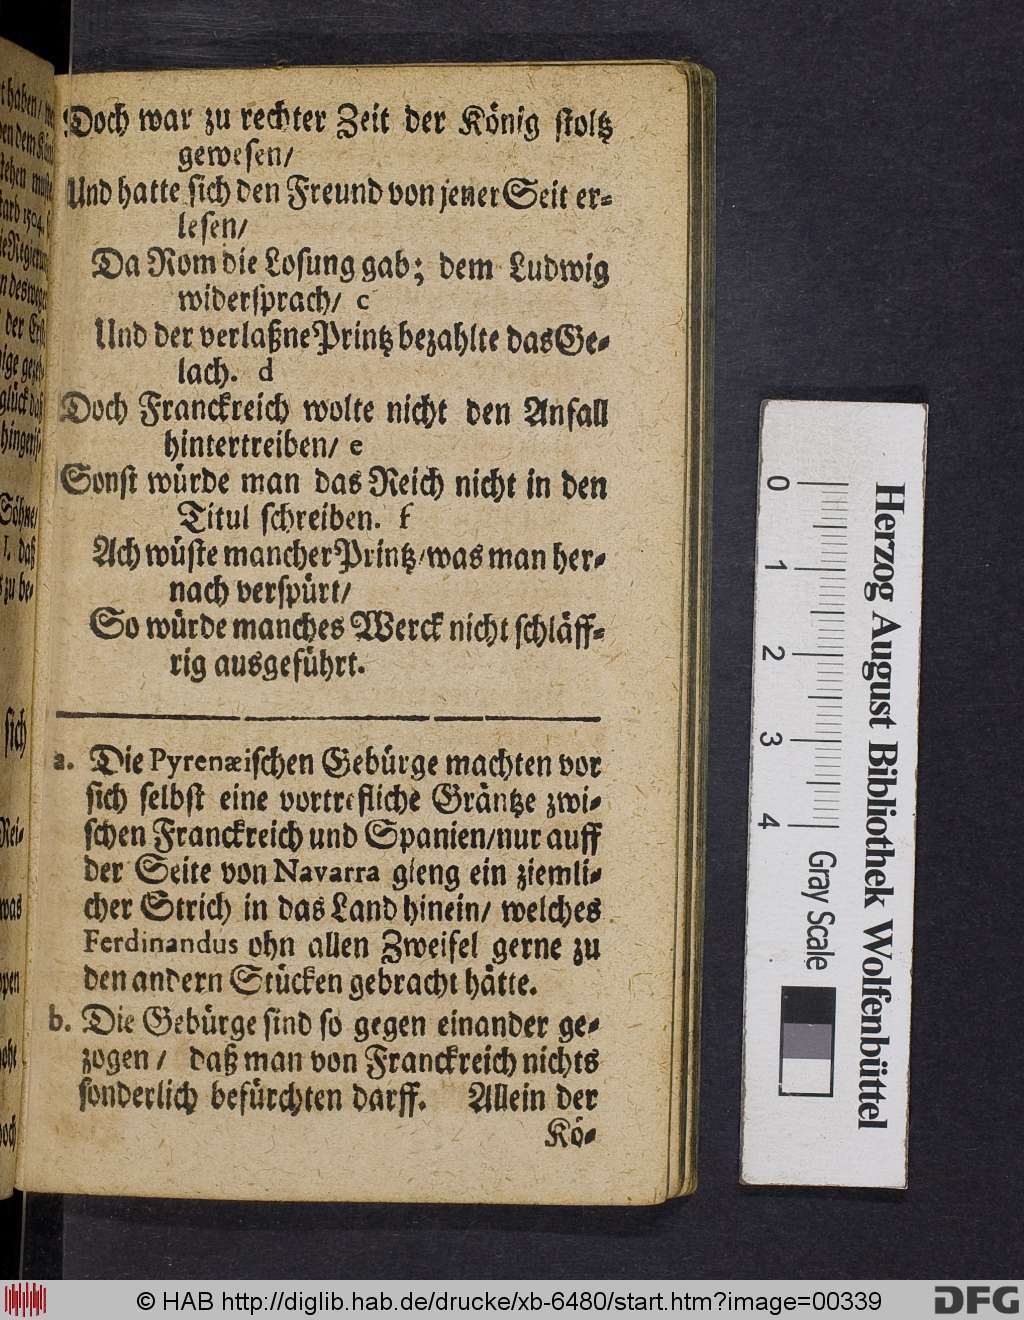 Doch war zu rechter Zeit der König stoltz
gewesen/
Und hatte sich den Freund von jener Seit er-
lesen/
Da Rom die Losung gab; dem Ludwig
widersprach/ c
Und der verlaßne Printz bezahlte das Ge-
lach. d
Doch Franckreich wolte nicht den Anfall
hintertreiben/ e
Sonst würde man das Reich nicht in den
Titul schreiben. f
Ach wüste mancher Printz/was man her-
nach verspürt/
So würde manches Werck nicht schläff-
rig ausgeführt.
a. Die Pyrenæischen Gebürge machten vor
sich selbst eine vortrefliche Gräntze zwi-
schen Franckreich und Spanien/nur auff
der Seite von Navarra gieng ein ziemli-
cher Strich in das Land hinein/ welches
Ferdinandus ohn allen Zweifel gerne zu
den andern Stücken gebracht hätte.
b. Die Gebürge sind so gegen einander ge-
zogen/ daß man von Franckreich nichts
sonderlich befürchten darff. Allein der
Kö-
0 1 2 3 4 Gray Scale
Herzog August Bibliothek Wolfenbüttel
© HAB http://diglib.hab.de/drucke/xb-6480/start.htm?image=00339
DFG